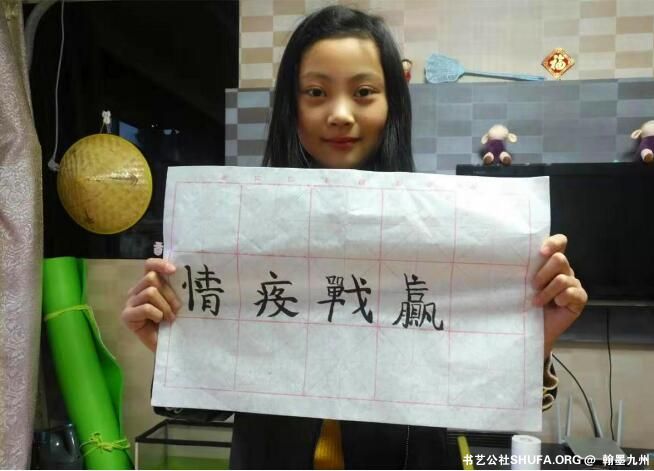 福
贏戰疫情
书艺公社SHUFA.ORG @ 翰墨九州